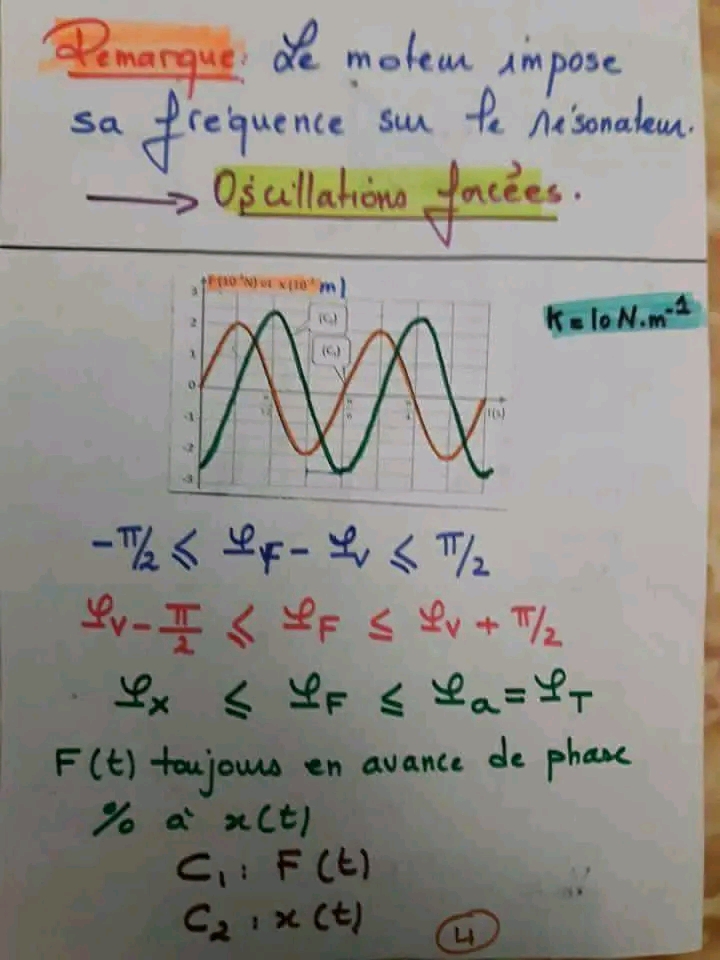 Remarque: Le moteur impose
sa fréquence sur le résonateur.
→ Oscillations forcées.
F(10⁻¹N) et x(10⁻² m)
K = 10 N.m⁻¹
3
2
1
0
-1
-2
-3
t(s)
-π/2 ⩽ φF - φv ⩽ π/2
φv - π/2 ⩽ φF ⩽ φv + π/2
φx ⩽ φF ⩽ φa = φT
F(t) toujours en avance de phase
% à x(t)
C₁ : F(t)
C₂ : x(t)
4